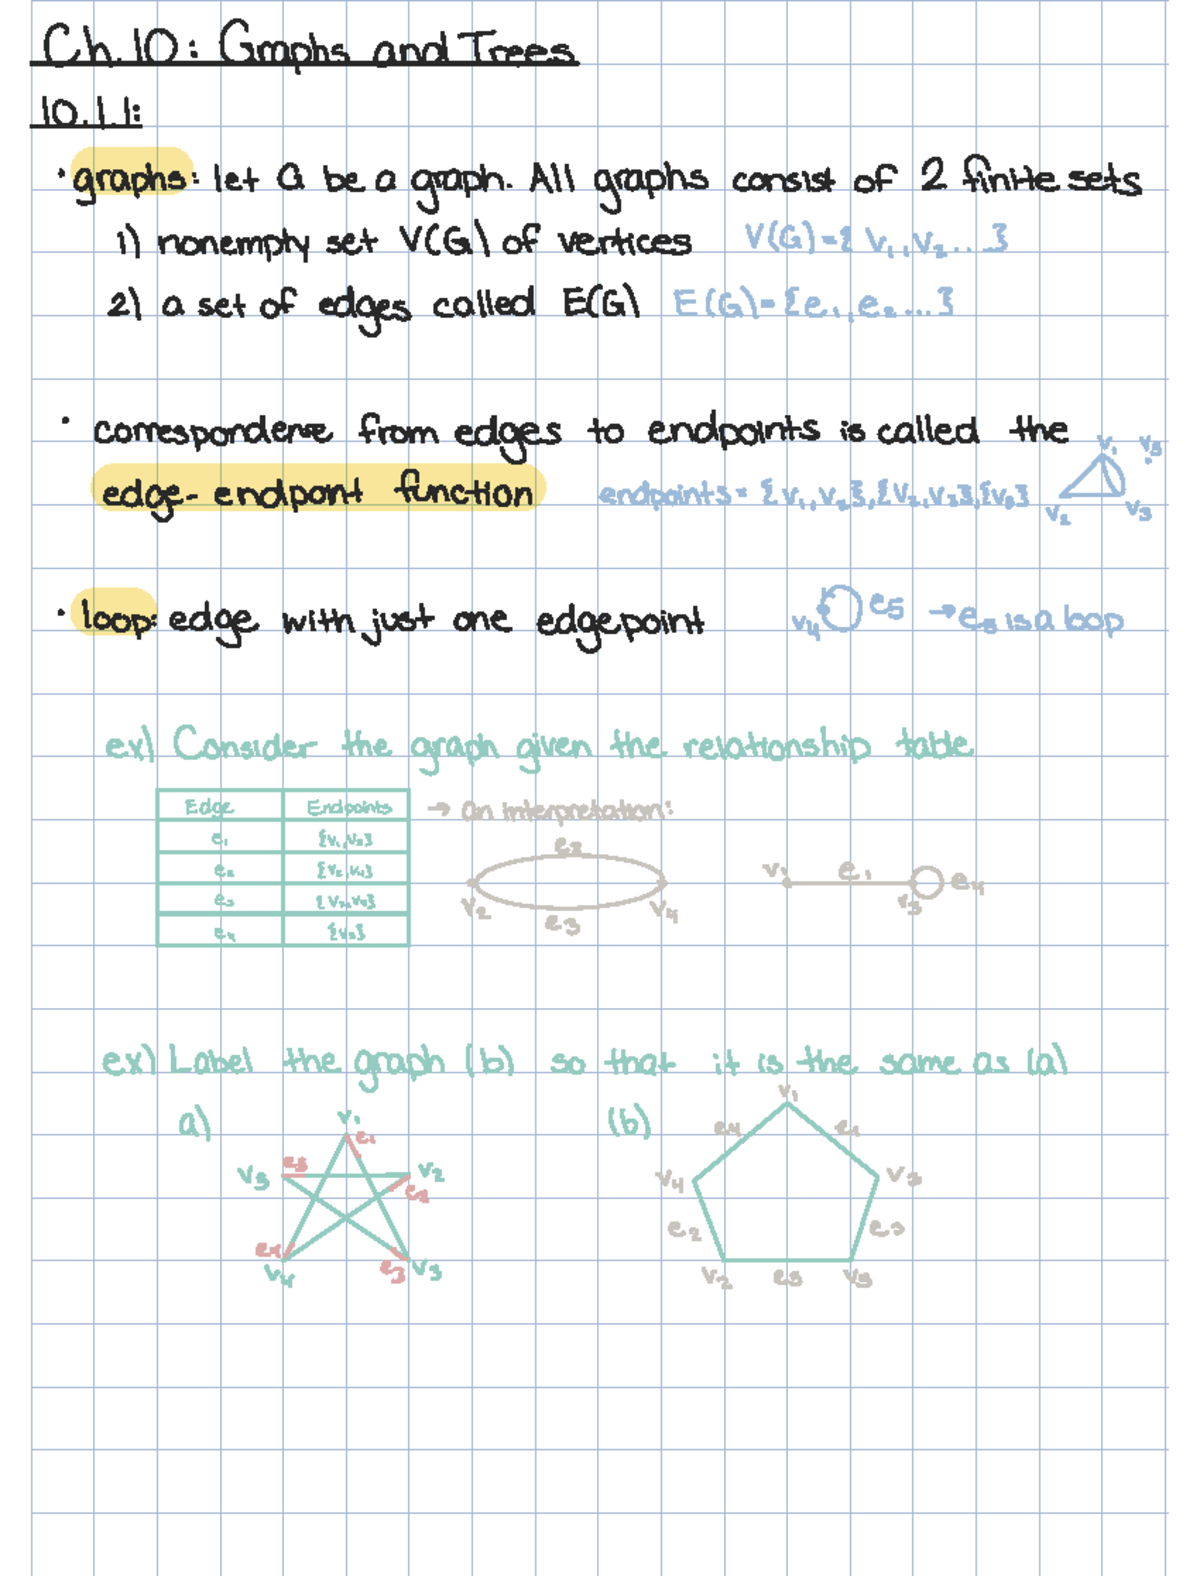 Ch.10: Graphs and Trees
10.1.1:
· graphs: let G be a graph. All graphs consist of 2 finite sets
1) nonempty set V(G) of vertices V(G)={ v₁, v₂ ...}
2) a set of edges called E(G) E(G)={e₁, e₂ ...}
· correspondence from edges to endpoints is called the
v₁ v₅
edge-endpoint function endpoints=
v₂ v₃
· loop: edge with just one edgepoint v₄ e₅ →e₅ is a loop
ex) Consider the graph given the relationship table
Edge Endpoints → an interpretation:
e₁ {v₁,v₃}
e₂ {v₂,v₄}
e₃ {v₂,v₄}
e₄ {v₃}
e₂
v₁ e₁ e₄
v₂ v₄ v₃
e₃
ex) Label the graph (b) so that it is the same as (a)
a) v₁ (b) v₁
e₁ e₄ e₁
v₅ e₅ v₂ v₄ v₃
e₂
e₂ e₃
e₄ e₃
v₄ v₃ v₂ e₅ v₅